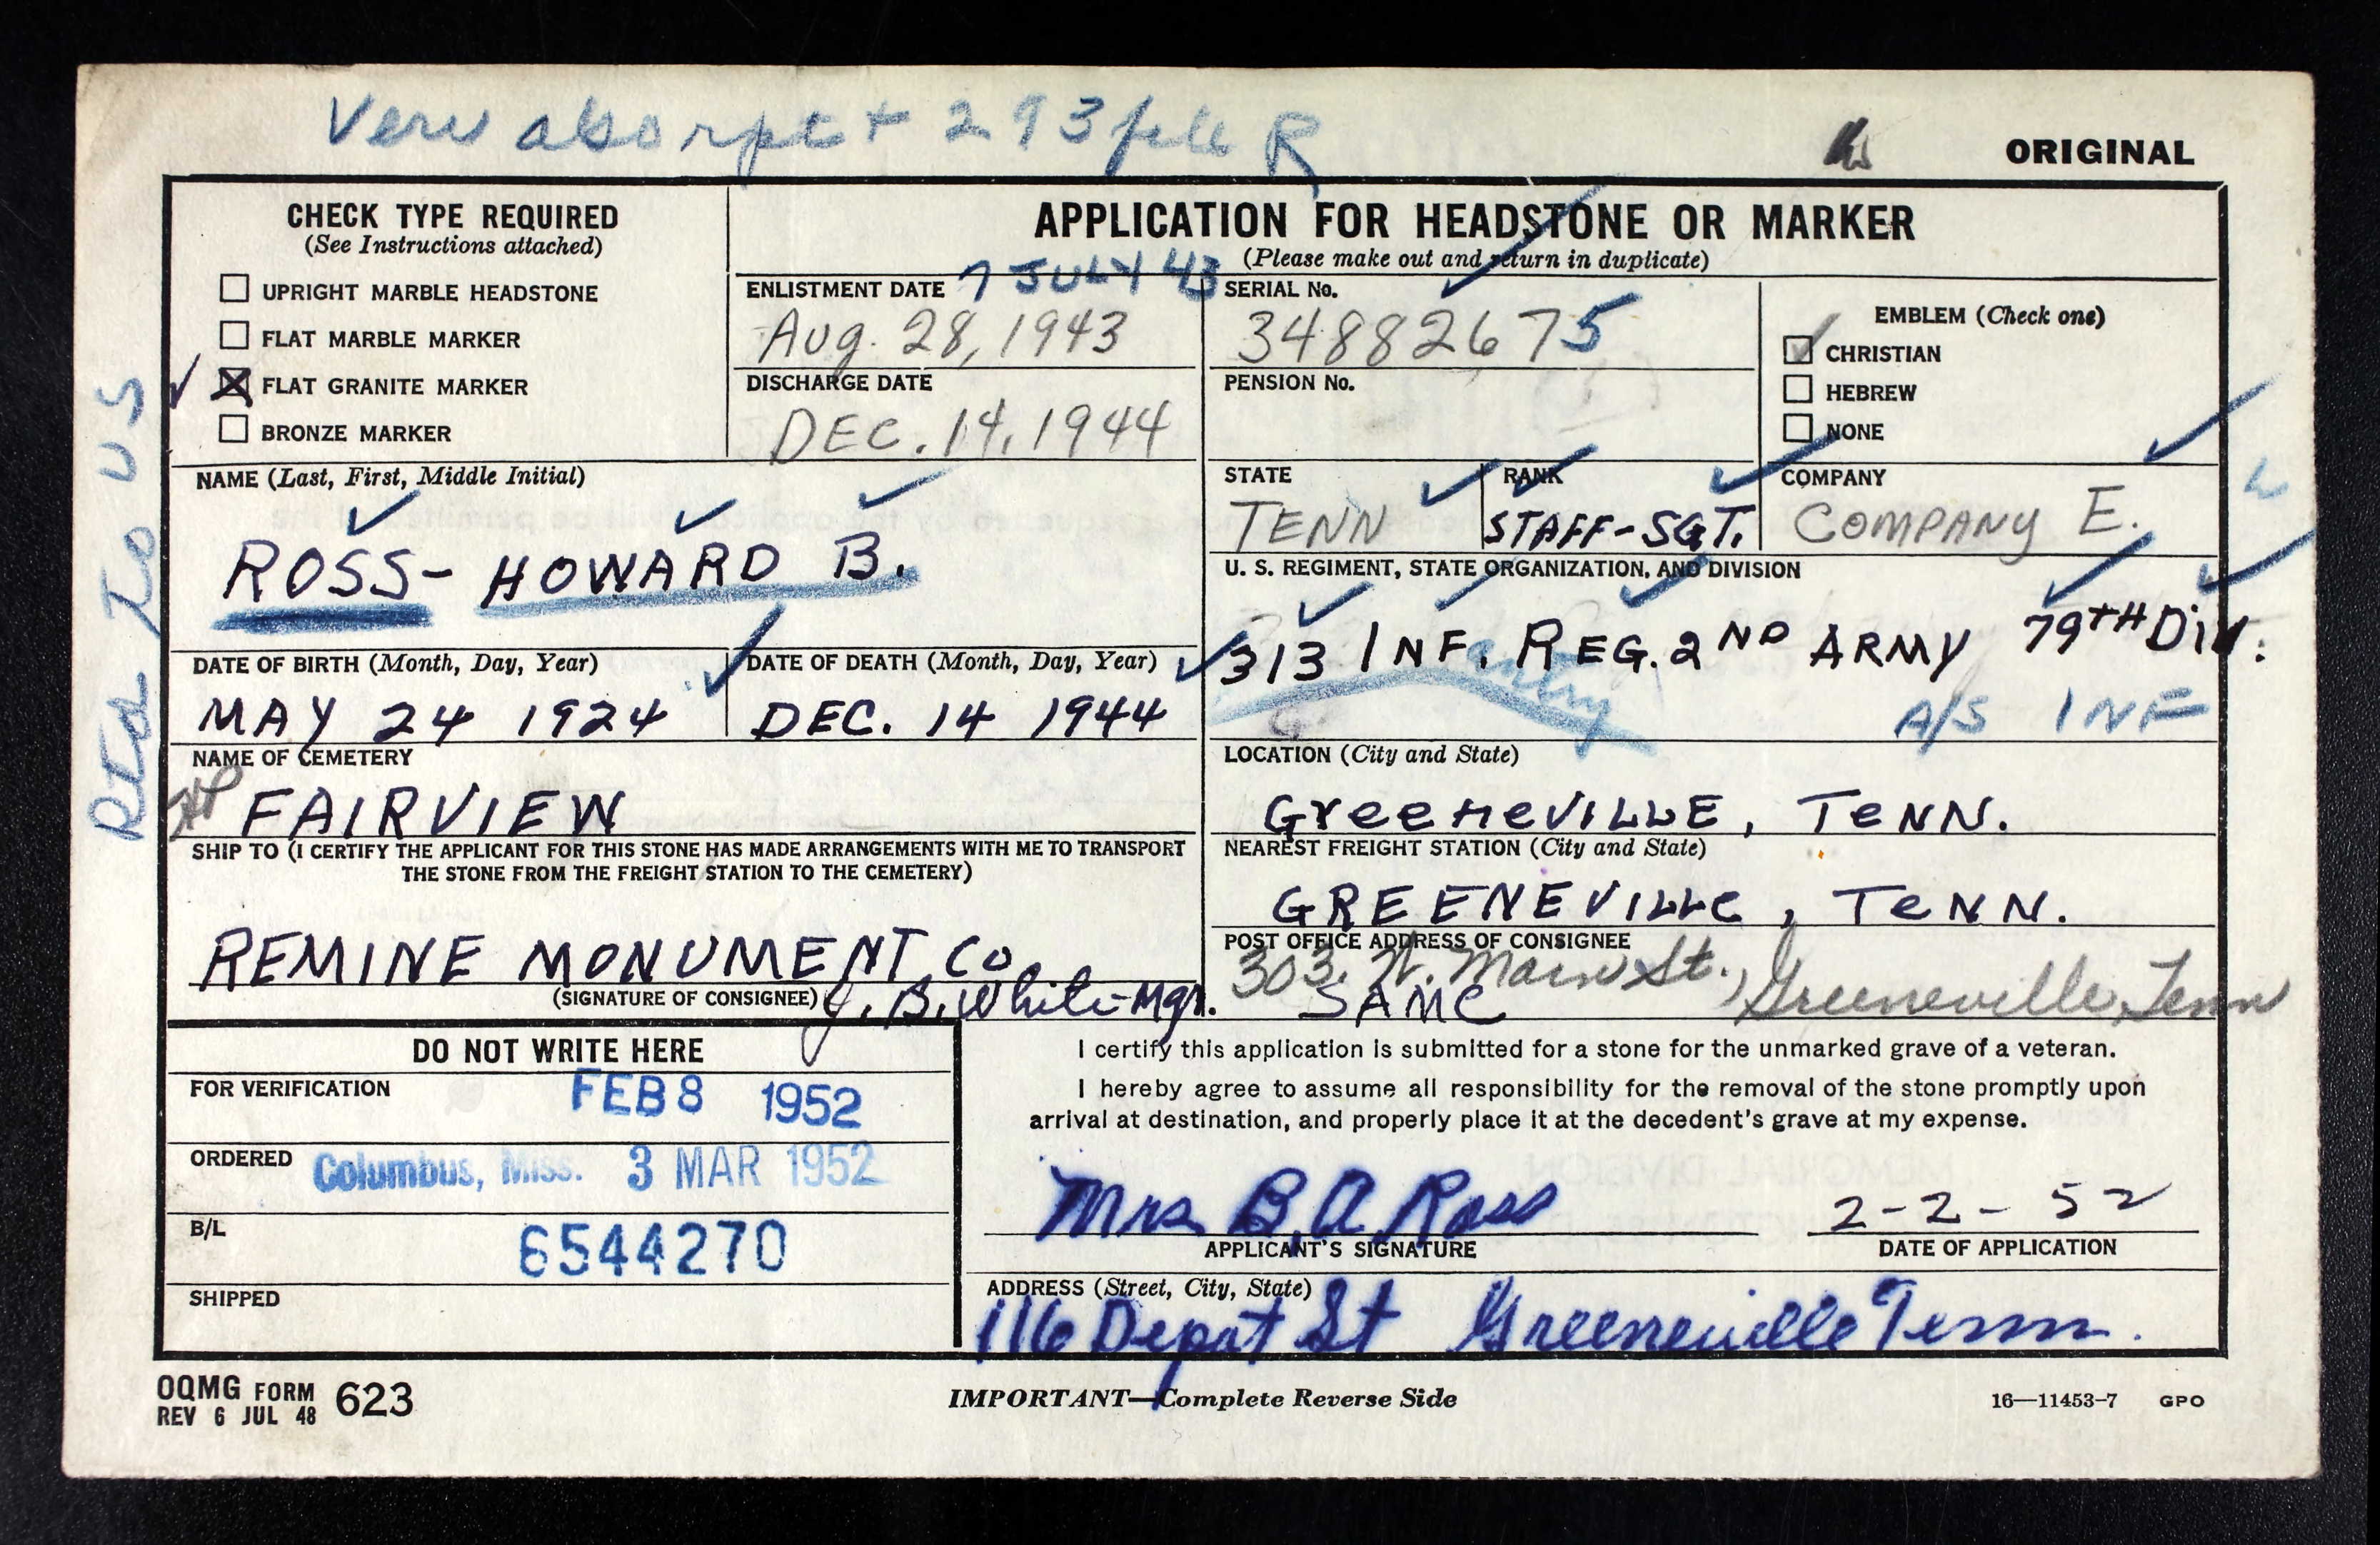 ORIGINAL
CHECK TYPE REQUIRED
(See Instructions attached)
UPRIGHT MARBLE HEADSTONE
FLAT MARBLE MARKER
FLAT GRANITE MARKER
BRONZE MARKER
APPLICATION FOR HEADSTONE OR MARKER
(Please make out and return in duplicate)
ENLISTMENT DATE 7 JULY 43
Aug. 28, 1943
DISCHARGE DATE
DEC. 14, 1944
SERIAL No.
34882675
PENSION No.
EMBLEM (Check one)
CHRISTIAN
HEBREW
NONE
NAME (Last, First, Middle Initial)
ROSS- HOWARD B.
STATE
TENN
RANK
STAFF-SGT.
COMPANY
COMPANY E.
U. S. REGIMENT, STATE ORGANIZATION, AND DIVISION
313 INF. REG. 2ND ARMY 79TH DIV.
antry
A/S INF
DATE OF BIRTH (Month, Day, Year)
MAY 24 1924
DATE OF DEATH (Month, Day, Year)
DEC. 14 1944
NAME OF CEMETERY
FAIRVIEW
LOCATION (City and State)
GreeneVILLE, TeNN.
SHIP TO (I CERTIFY THE APPLICANT FOR THIS STONE HAS MADE ARRANGEMENTS WITH ME TO TRANSPORT
THE STONE FROM THE FREIGHT STATION TO THE CEMETERY)
REMINE MONUMENT CO.
(SIGNATURE OF CONSIGNEE) J. B. White-Mgr.
NEAREST FREIGHT STATION (City and State)
GREENEVILLE, TeNN.
POST OFFICE ADDRESS OF CONSIGNEE
303. N. Main St., Greeneville, Tenn
SAME
DO NOT WRITE HERE
FOR VERIFICATION
FEB 8 1952
ORDERED Columbus, Miss. 3 MAR 1952
B/L
6544270
SHIPPED
I certify this application is submitted for a stone for the unmarked grave of a veteran.
I hereby agree to assume all responsibility for the removal of the stone promptly upon
arrival at destination, and properly place it at the decedent's grave at my expense.
Mrs B. A. Ross
APPLICANT'S SIGNATURE
2-2-52
DATE OF APPLICATION
ADDRESS (Street, City, State)
116 Depot St Greeneville Tenn.
OQMG FORM 623
REV 6 JUL 48
IMPORTANT—Complete Reverse Side
16—11453-7 GPO